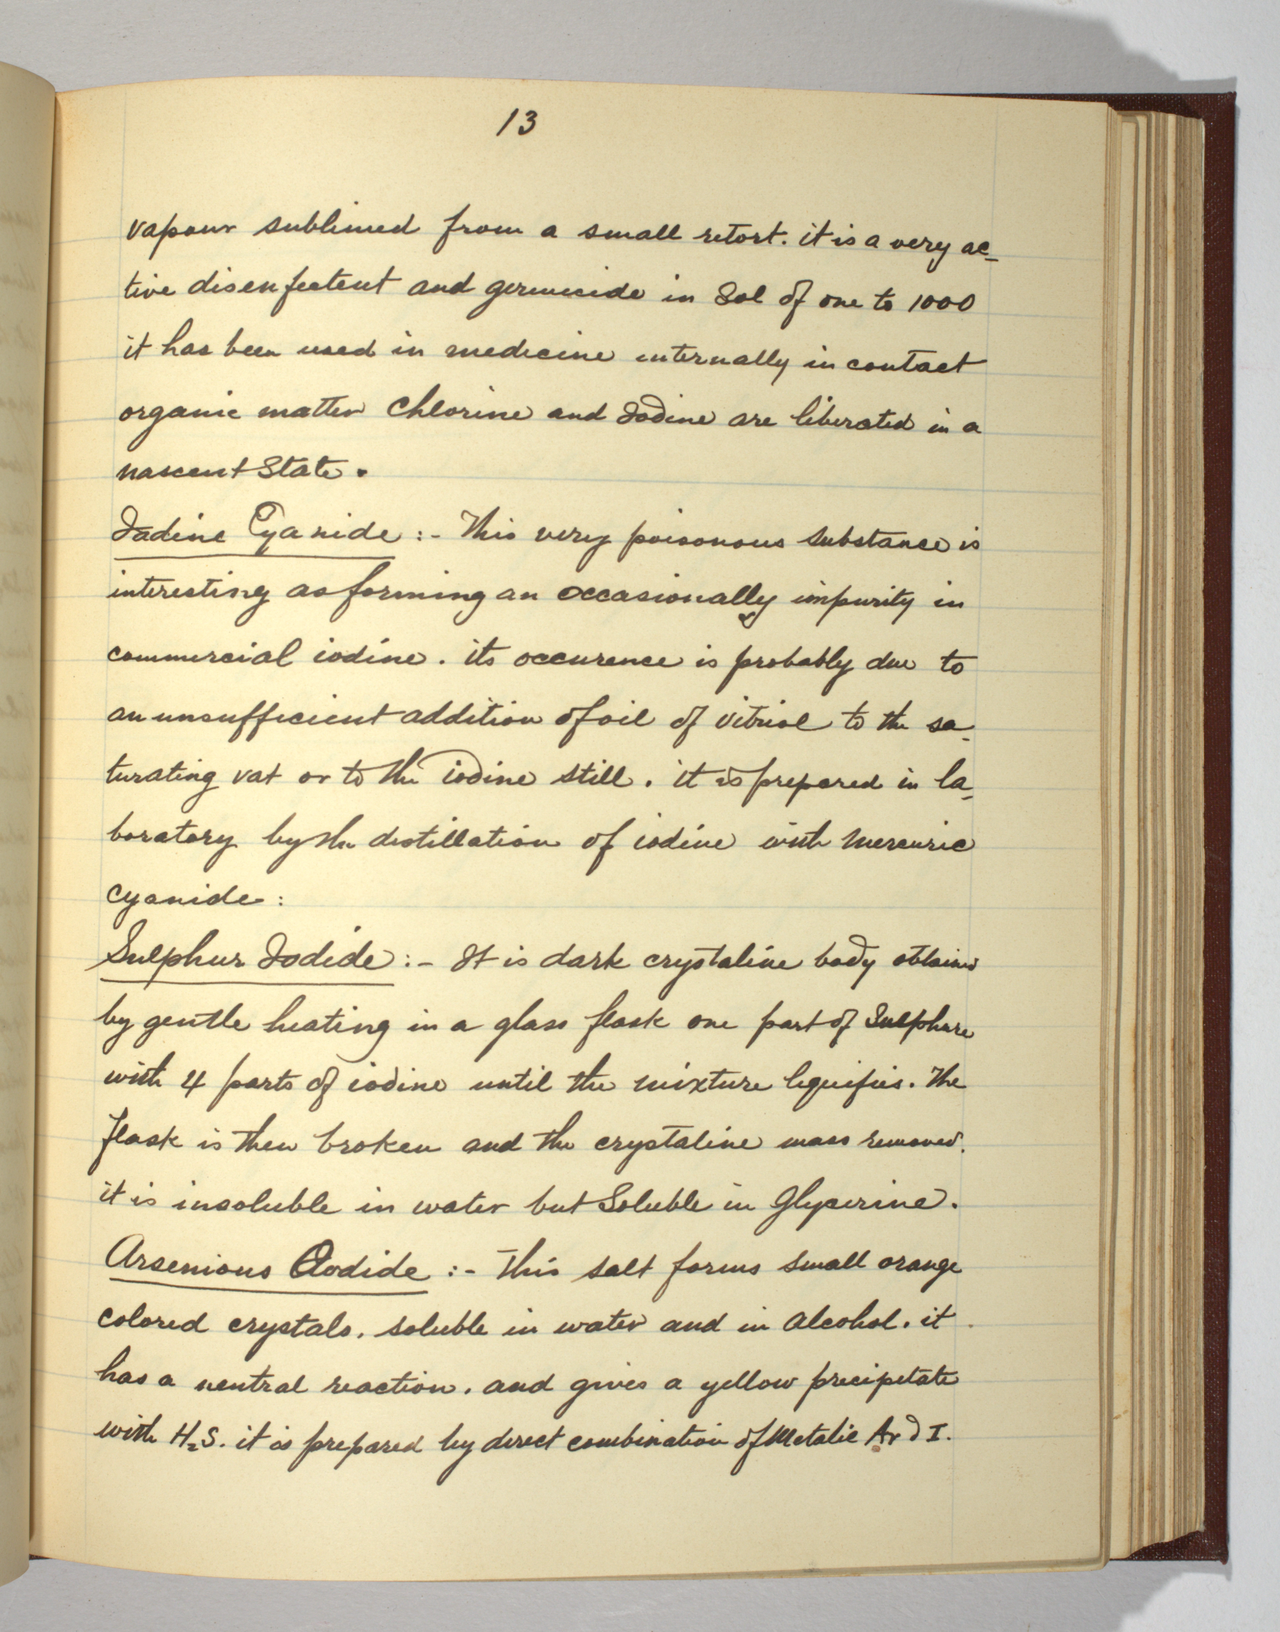 13
vapour sublimed from a small retort. it is a very ac-
tive disenfectent and germicide in Sol of one to 1000
it has been used in medicine internally in contact
organic matter Chlorine and Iodine are liberated in a
nascent State.
Iodine Cyanide :- This very poisonous substance is
interesting as forming an occasionally impurity in
commercial iodine. its occurence is probably due to
an unsufficient addition of oil of vitriol to the sa-
turating vat or to the iodine still. it is prepared in la-
boratory by the distillation of iodine with Mercuric
cyanide:
Sulphur Iodide :- It is dark crystaline body obtained
by gentle heating in a glass flask one part of Sulphure
with 4 parts of iodine until the mixture liquifies. The
flask is then broken and the crystaline mass removed.
it is insoluble in water but Soluble in Glycerine.
Arsenious Iodide :- This salt forms small orange
colored crystals. soluble in water and in Alcohol. it
has a neutral reaction. and gives a yellow precipitate
with H₂S. it is prepared by direct combination of Metalic I.